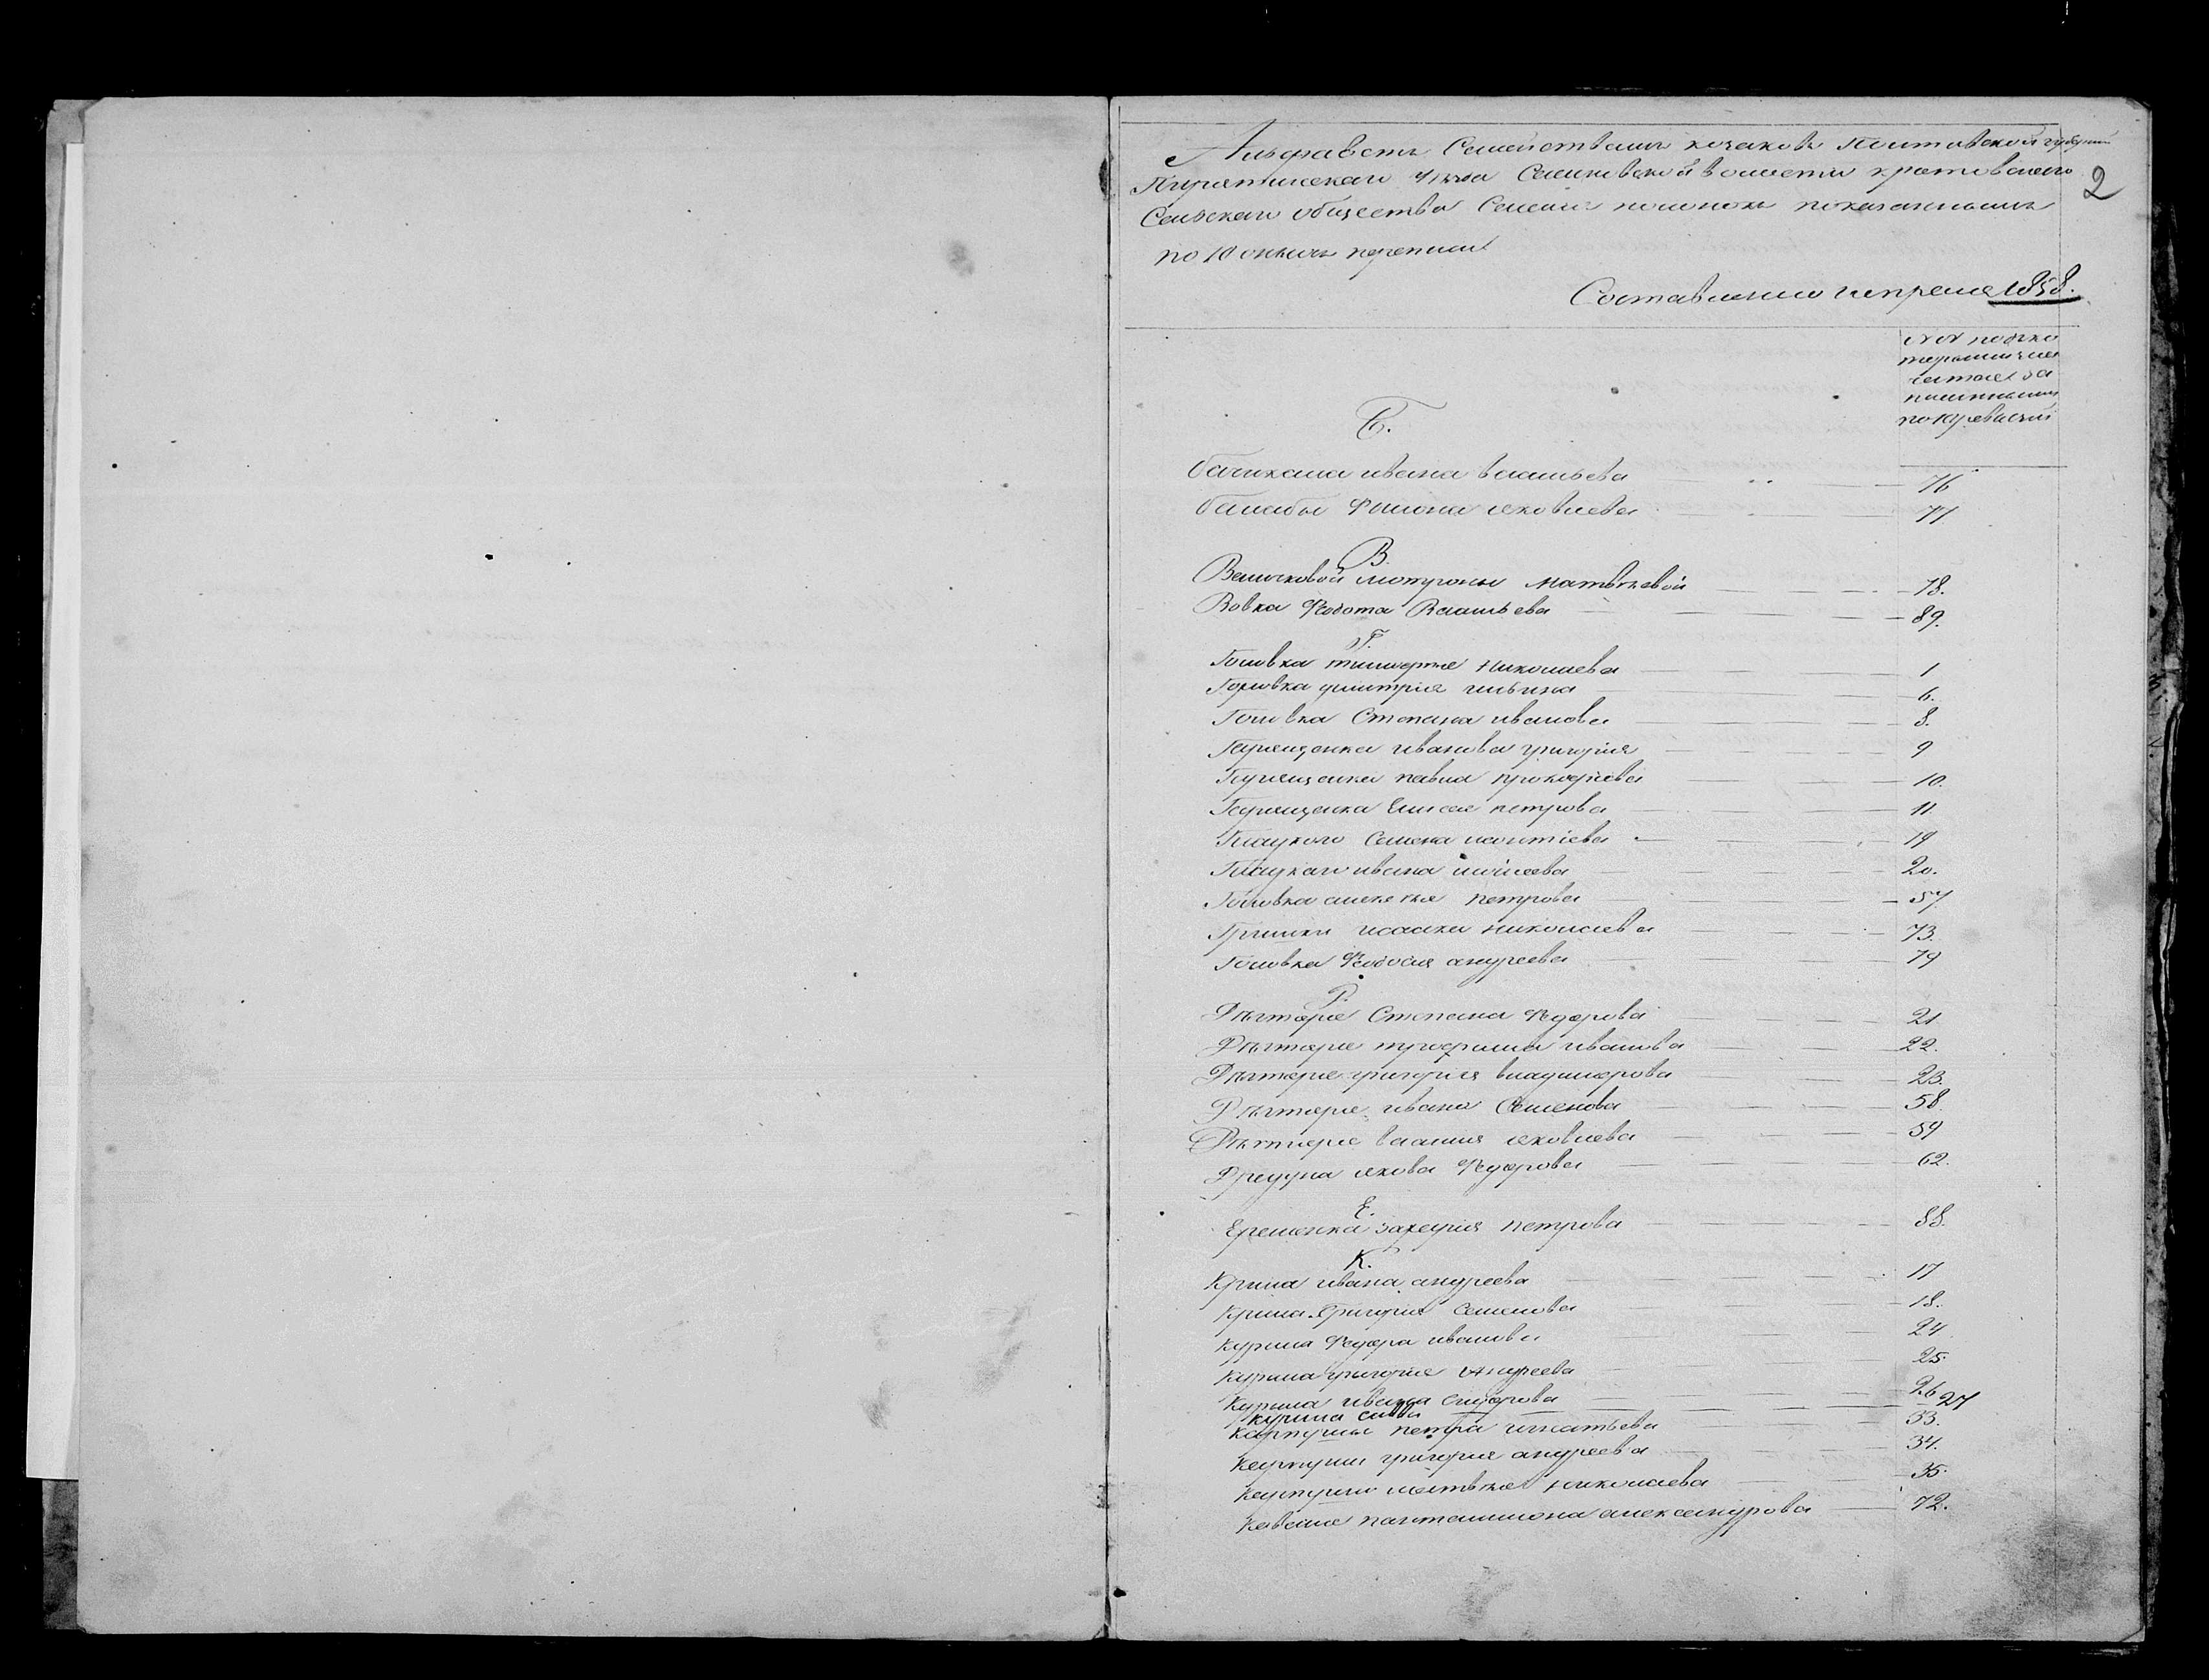 Алфаветъ Семействамъ козаковъ Полтавской губернии
Пирятинскаго уѣзда Сенковской волости
Сельскаго общества Селенія показаннымъ
по 10 переписи
2
Составлено 1858.
по 10й ревизіи
Б.
ивана васильева 76
Филона яковлева 77
В.
Величковой Мотроны Матвѣевой 78.
Вовка Федота Васильева 89.
Г.
Головка тимофея Николаева 1
Головка димитрія ильина 6.
Головка Степана иванова 8.
Геращенка иванова григорія 9
Геращенка павла прокофіева 10.
Геращенка Елисея петрова 11.
Гладкого Семена леонтіева 19
Гладкаго ивана моисеева 20.
Головка алексѣя петрова 57
Гришки исаака николаева 73.
Головка Феодосія андреева 79
Д.
Дѣхтяря Степана Федорова 21
Дѣхтяря трофима иванова 22.
Дѣхтяря григорія владимерова 23.
Дѣхтяря ивана Семенова 58.
Дѣхтяря василія яковлева 59
якова Федорова 62.
Е.
Еременка захарія петрова 88.
К.
Крила ивана андреева 17
Крила Григорія Семенова 18.
Курила Федора иванова 24
Курила григорія Андреева 25.
Курила ивана Сидорова 26
Курила Савва 27
Карпуши петра игнатьева 33.
Карпуши григорія андреева 34.
Карпуши матвѣя николаева 35.
Коваля панталимона александрова 72.